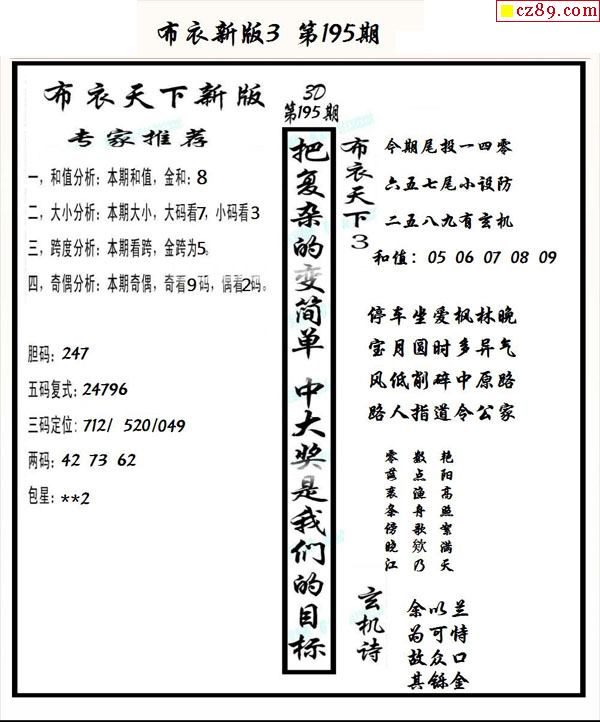 cz89.com
布衣新版3 第195期
布衣天下新版
专家推荐
一，和值分析：本期和值，金和：8
二，大小分析：本期大小，大码看7，小码看3
三，跨度分析：本期看跨，金跨为5。
四，奇偶分析：本期奇偶，奇看9码，偶看2码。
胆码：247
五码复式：24796
三码定位：712/ 520/049
两码：42 73 62
包星：**2
3D
第195期
把复杂的变简单 中大奖是我们的目标
布衣天下3
今期尾投一四零
六五七尾小设防
二五八九有玄机
和值：05 06 07 08 09
停车坐爱枫林晚
宝月圆时多异气
风低削碎中原路
路人指道令公家
艳阳高照案满天
数点渔舟歌欸乃
零落衰条傍晓江
玄机诗
余以兰
为可恃
故众口
其铄金